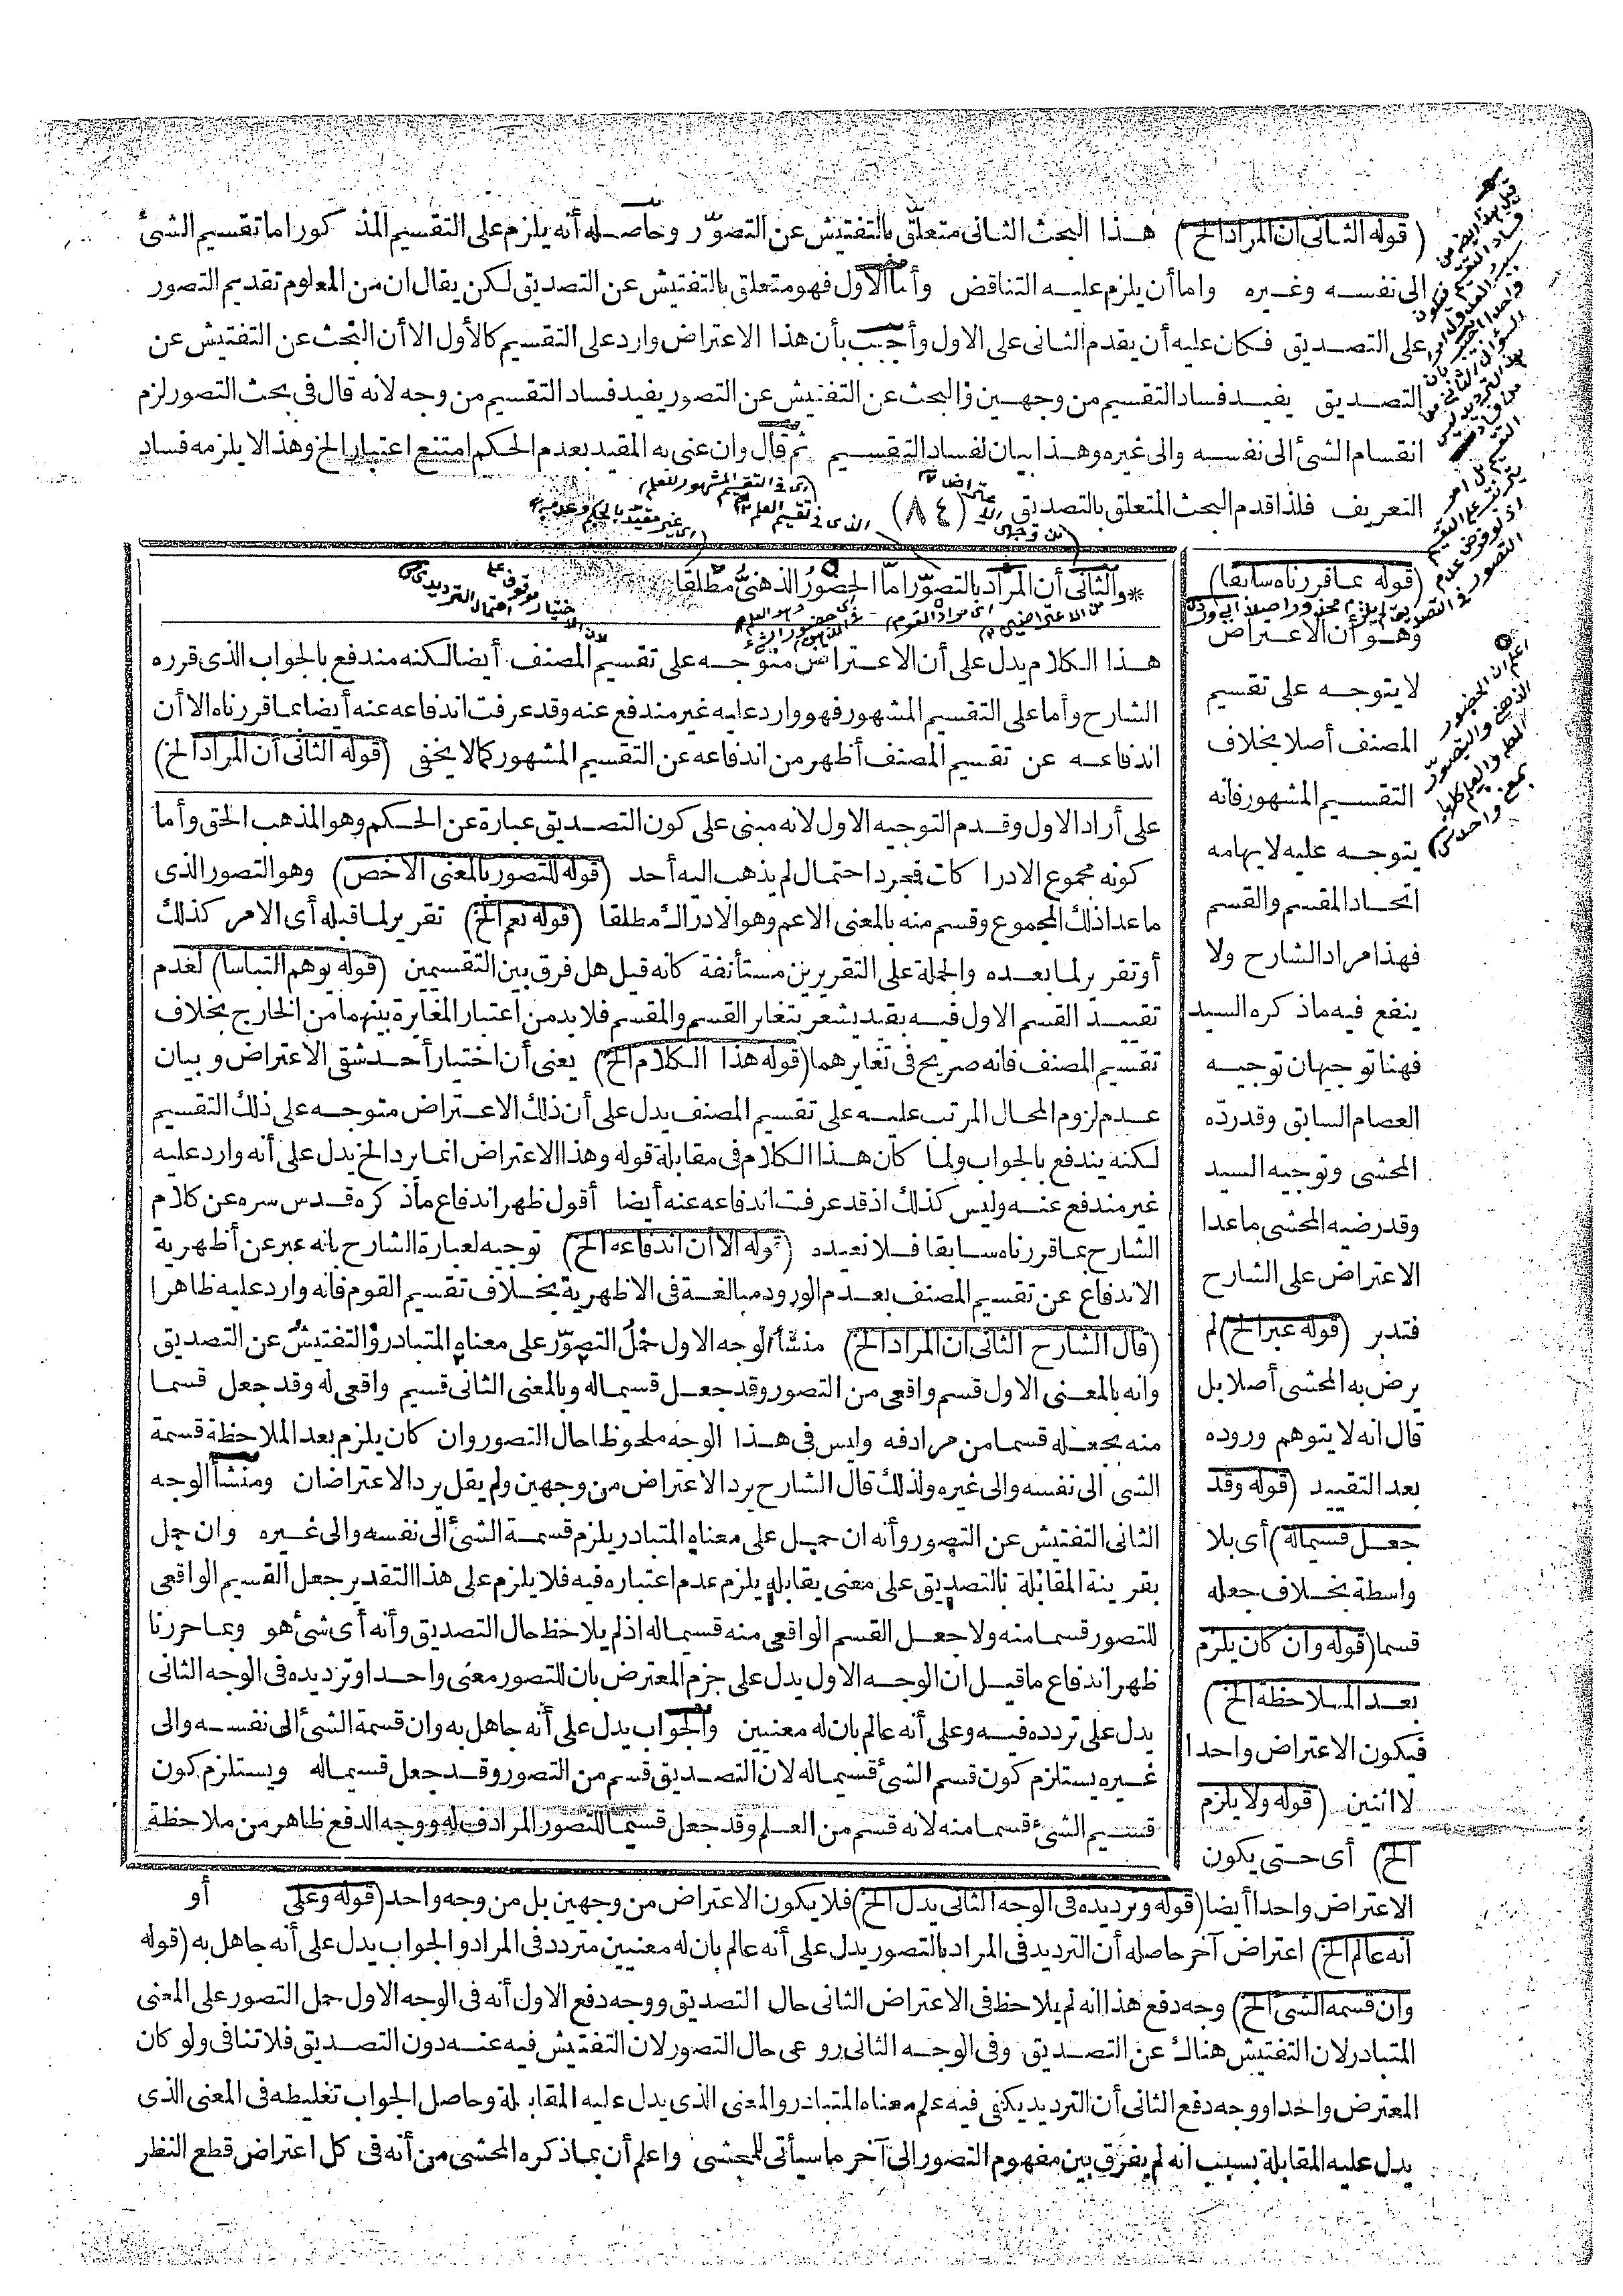 (قوله الثانى ان المراد الخ) هذا البحث الثانى متعلق بالتفتيش عن التصوّر وحاصله أنه يلزم على التقسيم المذكور اما تقسيم الشئ
الى نفسه وغيره واما أن يلزم عليه التناقض وأما الاول فهو متعلق بالتفتيش عن التصديق لكن يقال ان من المعلوم تقديم التصور
على التصديق فكان عليه أن يقدم الثانى على الاول وأجيب بأن هذا الاعتراض وارد على التقسيم كالأول الا أن البحث عن التفتيش عن
التصديق يفيد فساد التقسيم من وجهين والبحث عن التفتيش عن التصور يفيد فساد التقسيم من وجه لانه قال فى بحث التصور لزم
انقسام الشئ الى نفسه والى غيره وهذا بيان لفساد التقسيم ثم قال وان عنى به المقيد بعدم الحكم امتنع اعتبار الخ وهذا لا يلزمه فساد
التعريف فلذا قدم البحث المتعلق بالتصديق
(٨٤)
*والثانى أن المراد بالتصوّر امّا الحضورُ الذهنىُّ مطلقا
هذا الكلام يدل على أن الاعتراض متوجه على تقسيم المصنف أيضا لكنه مندفع بالجواب الذى قرره
الشارح وأما على التقسيم المشهور فهو وارد عليه غير مندفع عنه وقد عرفت اندفاعه عنه أيضا بما قررناه الا أن
اندفاعه عن تقسيم المصنف أظهر من اندفاعه عن التقسيم المشهور كما لا يخفى (قوله الثانى أن المراد الخ)
على أراد الاول وقدم التوجيه الاول لانه مبنى على كون التصديق عبارة عن الحكم وهو المذهب الحق وأما
كونه مجموع الادراكات فمجرد احتمال لم يذهب اليه أحد (قوله للتصور بالمعنى الاخص) وهو التصور الذى
ماعدا ذلك المجموع وقسم منه بالمعنى الاعم وهو الادراك مطلقا (قوله نعم الخ) تقرير لما قبله أى الامر كذلك
أو تقرير لما بعده والجملة على التقريرين مستأنفة كانه قيل هل فرق بين التقسيمين (قوله يوهم التباسا) لعدم
تقييد القسم الاول فيه بقيد يشعر بتغاير القسم والمقسم فلا بد من اعتبار المغايرة بينهما من الخارج بخلاف
تقسيم المصنف فانه صريح فى تغايرهما (قوله هذا الكلام الخ) يعنى أن اختيار أحد شقى الاعتراض وبيان
عدم لزوم المحال المرتب عليه على تقسيم المصنف يدل على أن ذلك الاعتراض متوجه على ذلك التقسيم
لكنه يندفع بالجواب ولما كان هذا الكلام فى مقابلة قوله وهذا الاعتراض انما يرد الخ يدل على أنه وارد عليه
غير مندفع عنه وليس كذلك اذ قد عرفت اندفاعه عنه أيضا أقول ظهر اندفاع ما ذكره قدس سره عن كلام
الشارح بما قررناه سابقا فلا نعيده (قوله الا أن اندفاعه الخ) توجيه لعبارة الشارح بانه عبر عن أظهرية
الاندفاع عن تقسيم المصنف بعدم الورود مبالغة فى الاظهرية بخلاف تقسيم القوم فانه وارد عليه ظاهرا
(قال الشارح الثانى ان المراد الخ) منشأ الوجه الاول حمل التصوّر على معناه المتبادر والتفتيش عن التصديق
وانه بالمعنى الاول قسم واقعى من التصور وقد جعل قسيما له وبالمعنى الثانى قسيم واقعى له وقد جعل قسما
منه بجعله قسما من مرادفه وليس فى هذا الوجه ملحوظا حال التصور وان كان يلزم بعد الملاحظة قسمة
الشئ الى نفسه والى غيره ولذلك قال الشارح يرد الاعتراض من وجهين ولم يقل يرد الاعتراضان ومنشأ الوجه
الثانى التفتيش عن التصور وأنه ان حمل على معناه المتبادر يلزم قسمة الشئ الى نفسه والى غيره وان حمل
بقرينة المقابلة بالتصديق على معنى يقابله يلزم عدم اعتباره فيه فلا يلزم على هذا التقدير جعل القسيم الواقعى
للتصور قسما منه ولا جعل القسم الواقعى منه قسيما له اذ لم يلاحظ حال التصديق وأنه أى شئ هو وبما حررنا
ظهر اندفاع ما قيل ان الوجه الاول يدل على جزم المعترض بان للتصور معنى واحدا وترديده فى الوجه الثانى
يدل على تردده فيه وعلى أنه عالم بان له معنيين والجواب يدل على أنه جاهل به وان قسمة الشئ الى نفسه والى
غيره يستلزم كون قسم الشئ قسيما له لان التصديق قسم من التصور وقد جعل قسيما له ويستلزم كون
قسيم الشئ قسما منه لانه قسم من العلم وقد جعل قسيما للتصور المرادف له ووجه الدفع ظاهر من ملاحظة
أو
(قوله بما قررناه سابقا)
وهو أن الاعتراض
لا يتوجه على تقسيم
المصنف أصلا بخلاف
التقسيم المشهور فانه
يتوجه عليه لايهامه
اتحاد المقسم والقسم
فهذا مراد الشارح ولا
ينفع فيه ما ذكره السيد
فهنا توجيهان توجيه
العصام السابق وقد ردّه
المحشى وتوجيه السيد
وقد رضيه المحشى ما عدا
الاعتراض على الشارح
فتدبر (قوله عبر الخ) لم
يرض به المحشى أصلا بل
قال انه لا يتوهم وروده
بعد التقييد (قوله وقد
جعل قسيما له) أى بلا
واسطة بخلاف جعله
قسما (قوله وان كان يلزم
بعد الملاحظة الخ)
فيكون الاعتراض واحدا
لا اثنين (قوله ولا يلزم
الخ) أى حتى يكون
الاعتراض واحدا أيضا (قوله وترديده فى الوجه الثانى يدل الخ) فلا يكون الاعتراض من وجهين بل من وجه واحد (قوله وعلى
أنه عالم الخ) اعتراض آخر حاصله أن الترديد فى المراد بالتصور يدل على أنه عالم بان له معنيين متردد فى المراد والجواب يدل على أنه جاهل به (قوله
وان قسمة الشئ الخ) وجه دفع هذا انه لم يلاحظ فى الاعتراض الثانى حال التصديق ووجه دفع الاول أنه فى الوجه الاول حمل التصور على المعنى
المتبادر لان التفتيش هناك عن التصديق وفى الوجه الثانى روعى حال التصور لان التفتيش فيه عنه دون التصديق فلا تنافى ولو كان
المعترض واحدا ووجه دفع الثانى أن الترديد يكفى فيه علم معناه المتبادر والمعنى الذى يدل عليه المقابلة وحاصل الجواب تغليطه فى المعنى الذى
يدل عليه المقابلة بسبب انه لم يفرق بين مفهوم التصور الى آخر ما سيأتى للمحشى واعلم أن بما ذكره المحشى من أنه فى كل اعتراض قطع النظر